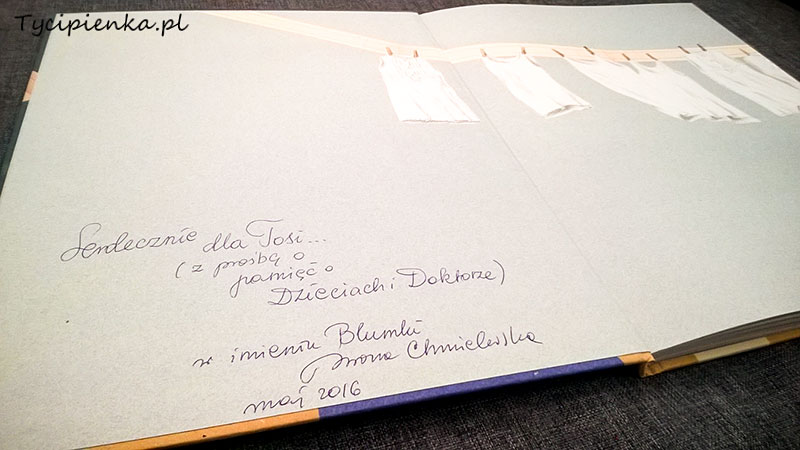 Tycipienka.pl
Serdecznie dla Tosi...
(z prośbą o
pamięć o
Dzieciach i Doktorze)
w imieniu Blumki
Iwona Chmielewska
maj 2016